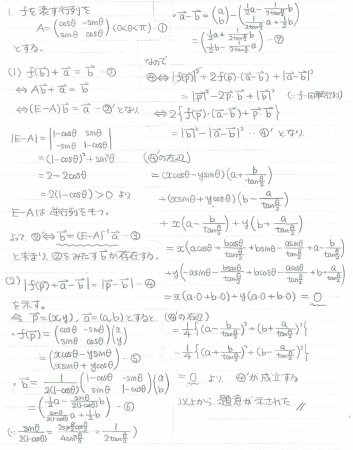 1. fを表す行列を
A = (cosθ -sinθ / sinθ cosθ) (0<θ<π) …①
とする。
(1) f(b→) + a→ = b→ …②
⇔ Ab→ + a→ = b→
⇔ (E-A)b→ = a→ …②' となり
|E-A| = |1-cosθ sinθ / -sinθ 1-cosθ|
= (1-cosθ)² + sin²θ
= 2 - 2cosθ
= 2(1-cosθ) > 0 より
E-Aは逆行列をもつ。
よって ②' ⇔ b→ = (E-A)⁻¹ a→ …③
と定まり、②をみたす b→ が存在する。
(2) |f(p→) + a→ - b→| = |p→ - b→| …④
を示す。
今 p→ = (x, y), a→ = (a, b) とすると、
・f(p→) = (cosθ -sinθ / sinθ cosθ)(x / y)
= (xcosθ - ysinθ / xsinθ + ycosθ) …⑤
・b→ = 1/2(1-cosθ) (1-cosθ -sinθ / sinθ 1-cosθ)(a / b)
= (1/2 a - sinθ/2(1-cosθ) b / sinθ/2(1-cosθ) a + 1/2 b) …⑥
(∵ sinθ/2(1-cosθ) = 2sinθ/2 cosθ/2 / 4sin²θ/2 = 1/2tanθ/2)
・a→ - b→ = (a / b) - (1/2 a - 1/2tanθ/2 b / 1/2tanθ/2 a + 1/2 b)
= (1/2 a + 1/2tanθ/2 b / 1/2 b - 1/2tanθ/2 a) …⑦
なので
④ ⇔ |f(p→)|² + 2f(p→)·(a→-b→) + |a→-b→|²
= |p→|² - 2p→·b→ + |b→|² (∵ fは回転行列)
⇔ 2{f(p→)·(a→-b→) + p→·b→}
= |b→|² - |a→-b→|² …④' となり、
(④'の左辺)
= (xcosθ - ysinθ)(a + b/tanθ/2)
+ (xsinθ + ycosθ)(b - a/tanθ/2)
+ x(a - b/tanθ/2) + y(b + a/tanθ/2)
= x(acosθ + bcosθ/tanθ/2 + bsinθ - asinθ/tanθ/2 + a - b/tanθ/2)
+ y(-asinθ - bsinθ/tanθ/2 + bcosθ - acosθ/tanθ/2 + b + a/tanθ/2)
= x(a·0 + b·0) + y(a·0 + b·0) = 0
(④'の右辺)
= 1/4{(a - b/tanθ/2)² + (b + a/tanθ/2)²}
- 1/4{(a + b/tanθ/2)² + (b - a/tanθ/2)²}
= 0 より ④'が成立する
以上から、題意が示された //